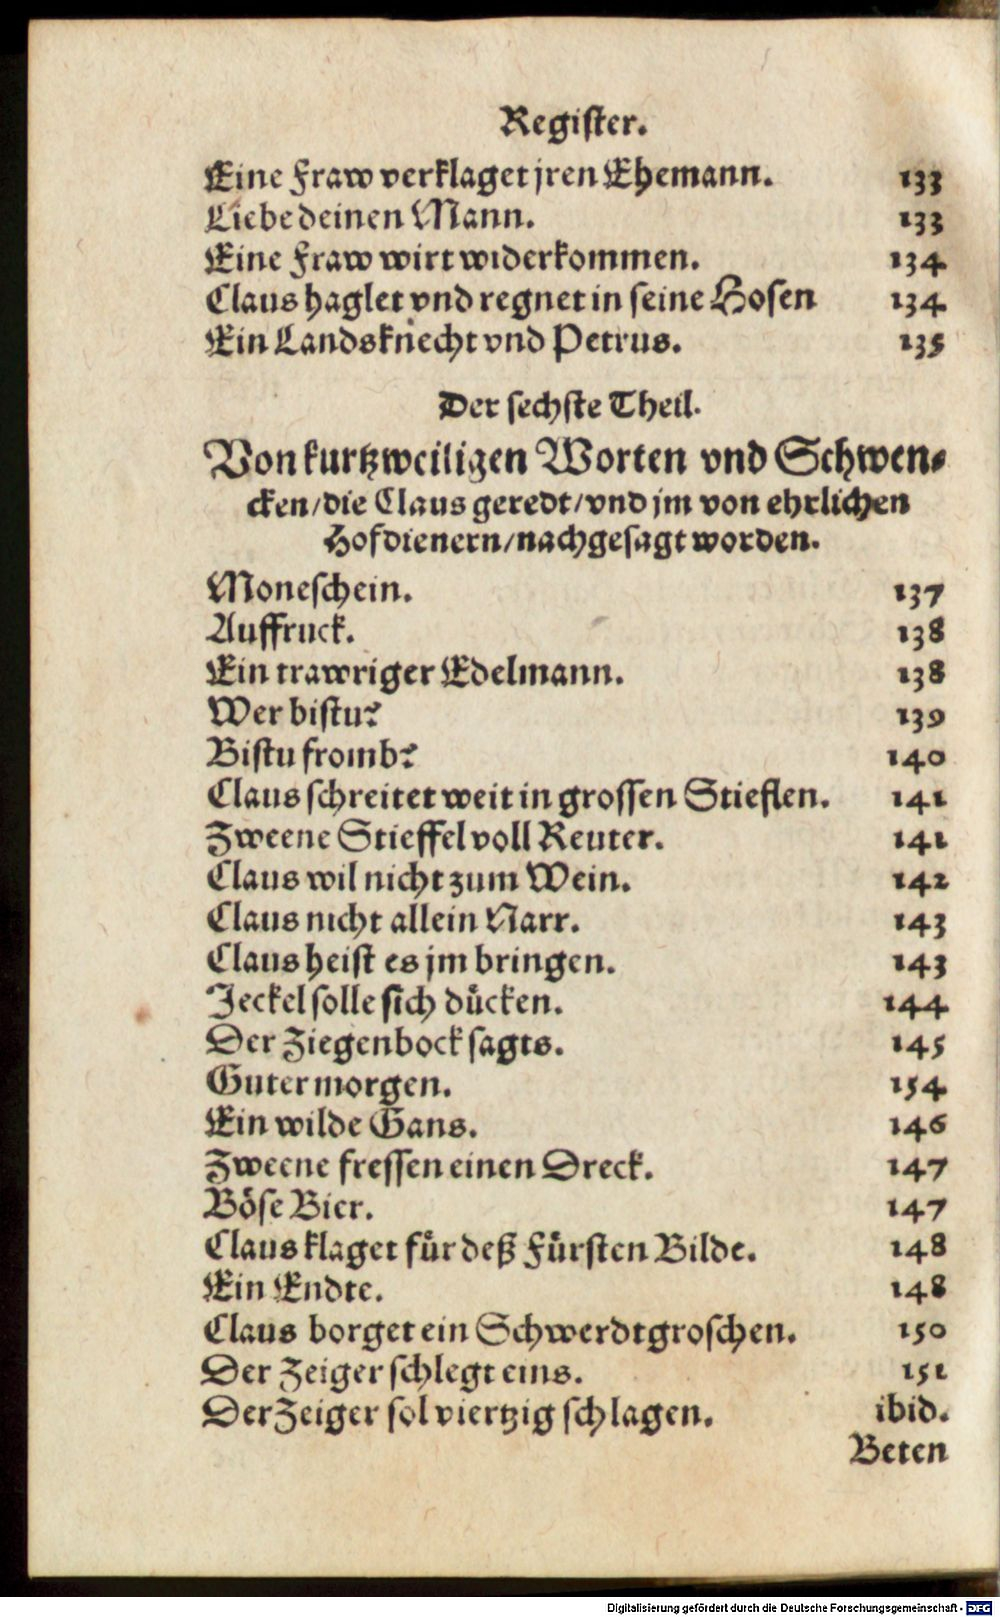 Register.
Eine Fraw verklaget jren Ehemann. 133
Liebe deinen Mann. 133
Eine Fraw wirt widerkommen. 134
Claus haglet vnd regnet in seine Hosen 134
Ein Landsknecht vnd Petrus. 135
Der sechste Theil.
Von kurtzweiligen Worten vnd Schwen-
cken/die Claus geredt/vnd jm von ehrlichen
Hofdienern/nachgesagt worden.
Moneschein. 137
Auffruck. 138
Ein trawriger Edelmann. 138
Wer bistu? 139
Bistu fromb? 140
Claus schreitet weit in grossen Stieflen. 141
Zweene Stieffel voll Reuter. 141
Claus wil nicht zum Wein. 142
Claus nicht allein Narr. 143
Claus heist es jm bringen. 143
Jeckel solle sich duͤcken. 144
Der Ziegenbock sagts. 145
Guter morgen. 154
Ein wilde Gans. 146
Zweene fressen einen Dreck. 147
Boͤse Bier. 147
Claus klaget fuͤr deß Fuͤrsten Bilde. 148
Ein Endte. 148
Claus borget ein Schwerdtgroschen. 150
Der Zeiger schlegt eins. 151
Der Zeiger sol viertzig schlagen. ibid.
Beten
Digitalisierung gefördert durch die Deutsche Forschungsgemeinschaft - DFG